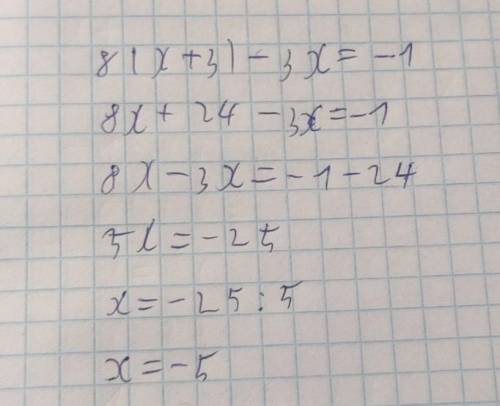 8(x+3)-3x=-1
8x+24-3x=-1
8x-3x=-1-24
5x=-25
x=-25:5
x=-5